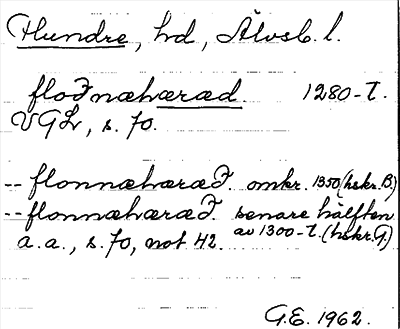 Flundre, hd, Älvsb. l.
floðnæhæræd. 1280-t.
VGL, s. 70.
-- flonnæhæræð. omkr. 1350 (hskr. B.)
-- flonnæhæræð. senare hälften
a.a., s. 70, not 42. av 1300-t. (hskr. G.)
G.E. 1962.